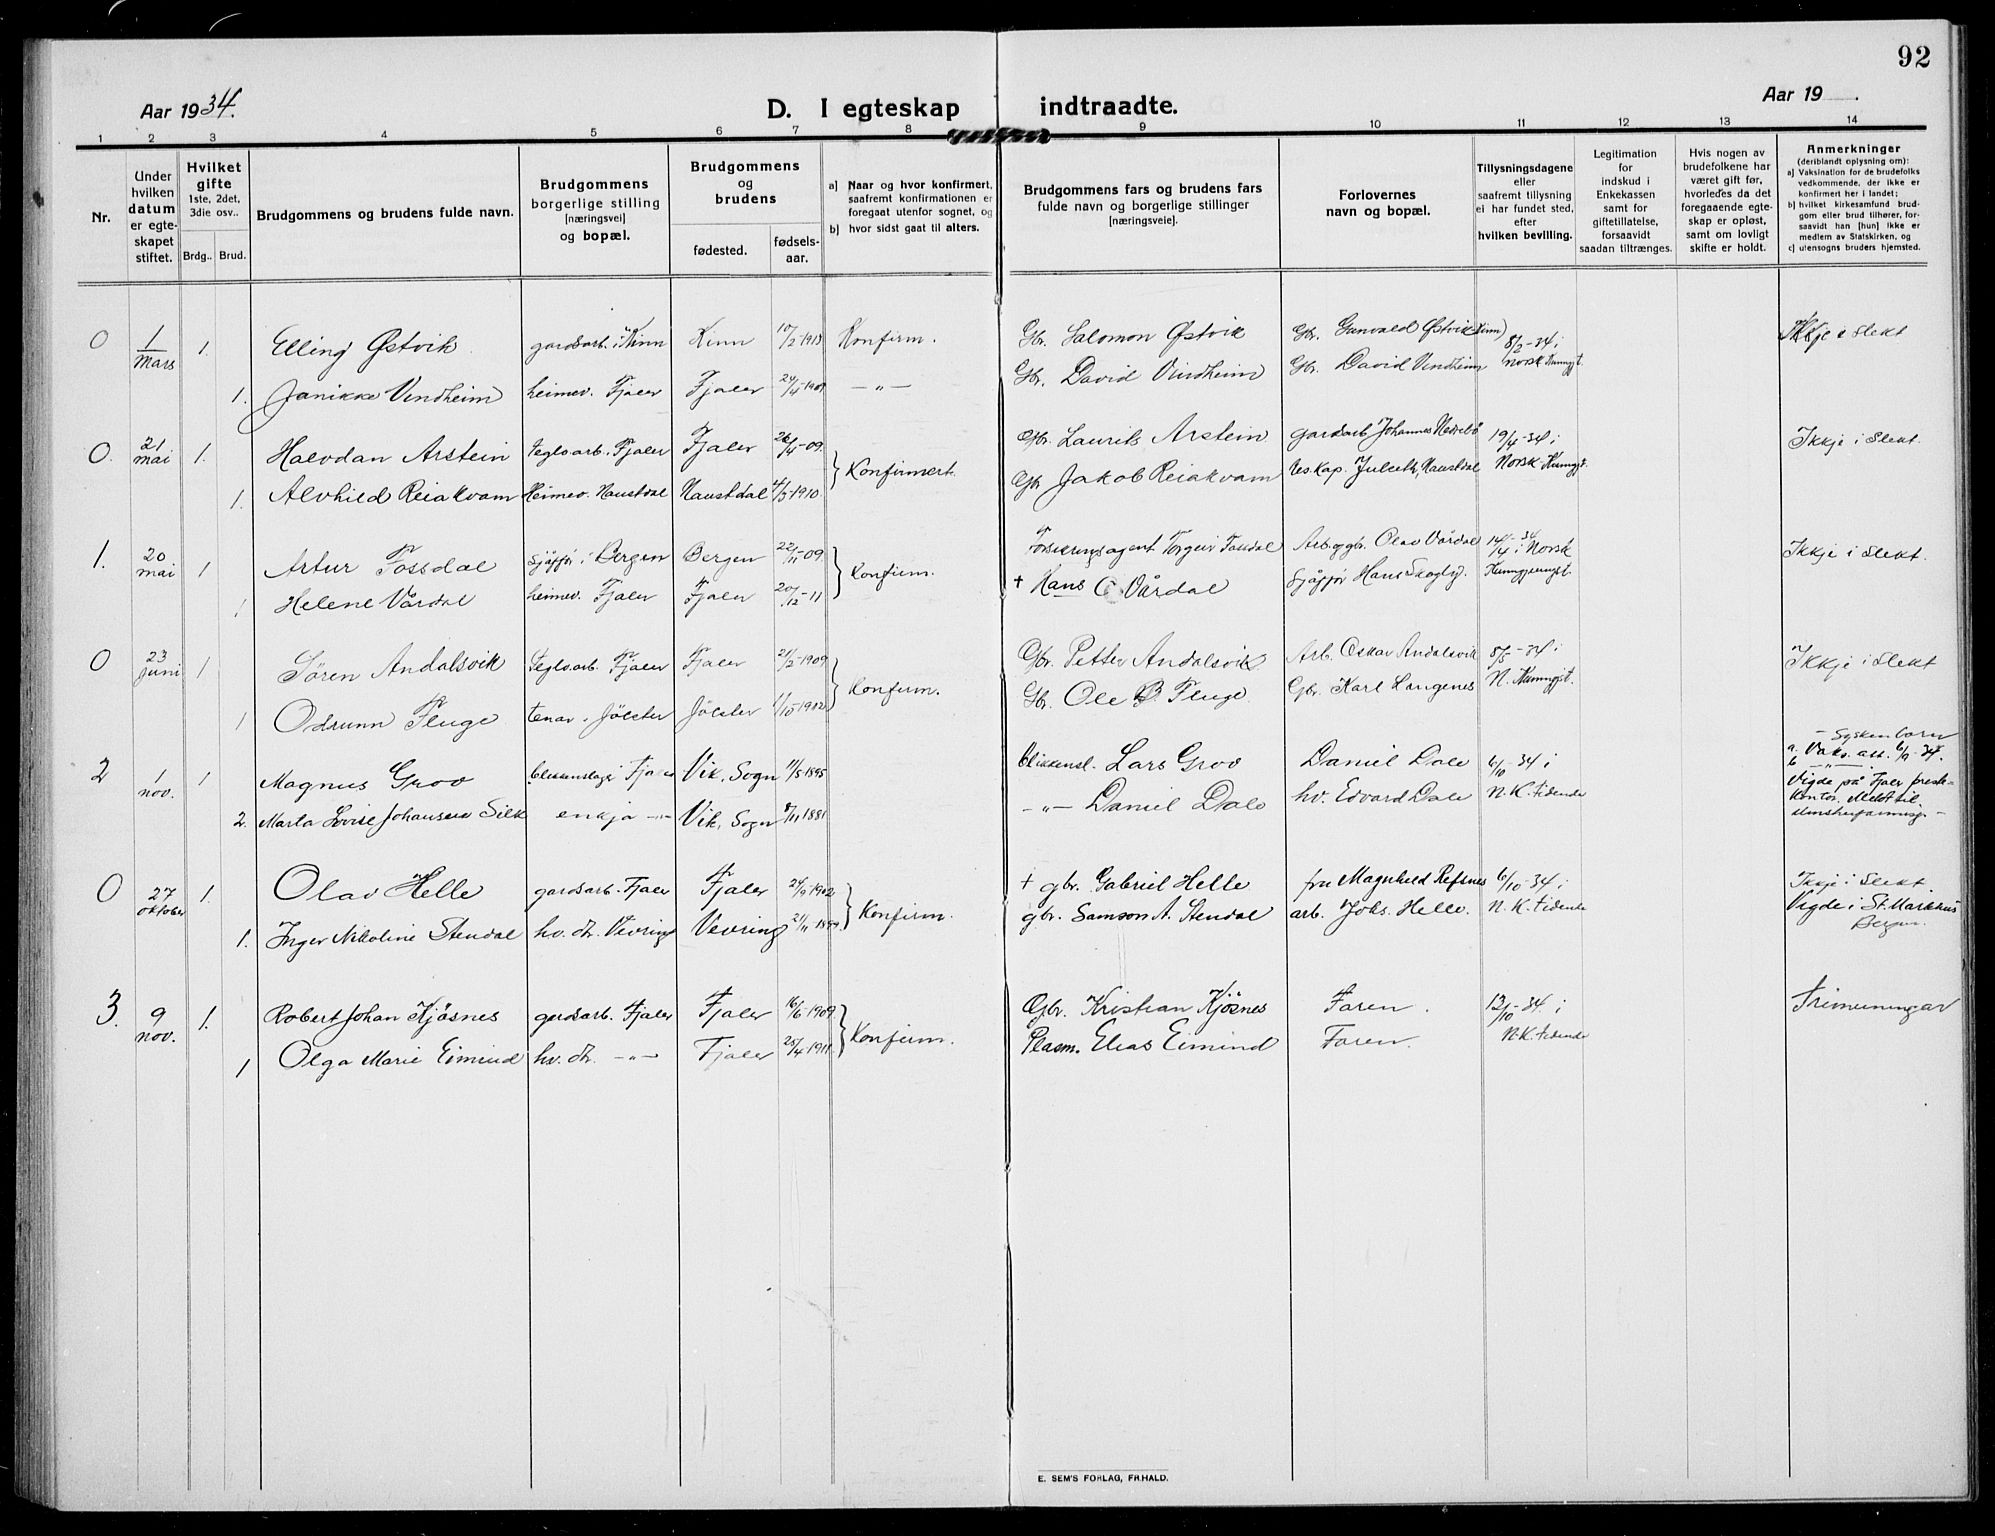 92
Aar 1934.
D. I egteskap indtraadte.
Aar 19 .
1 2 3 4 5 6 7 8 9 10 11 12 13 14
Nr.
Under hvilken datum er egteskapet stiftet.
Hvilket gifte
1ste, 2det, 3die osv..
Brdg.. Brud.
Brudgommens og brudens fulde navn.
Brudgommens borgerlige stilling [næringsvei] og bopæl.
Brudgommens og brudens
fødested.
fødsels-aar.
a] Naar og hvor konfirmert, saafremt konfirmationen er foregaat utenfor sognet, og
b] hvor sidst gaat til alters.
Brudgommens fars og brudens fars fulde navn og borgerlige stillinger [næringsveie].
Forlovernes navn og bopæl.
Tillysningsdagene eller saafremt tillysning ei har fundet sted, efter hvilken bevilling.
Legitimation for indskud i Enkekassen samt for giftetillatelse, forsaavidt saadan tiltrænges.
Hvis nogen av brudefolkene har været gift før, hvorledes da det foregaaende egteskap er opløst, samt om lovligt skifte er holdt.
Anmerkninger
(deriblandt oplysning om):
a] Vaksination for de brudefolks vedkommende, der ikke er konfirmert her i landet;
b] hvilket kirkesamfund brudgom eller brud tilhører, forsaavidt han [hun] ikke er medlem av Statskirken, og
c] utensogns bruders hjemsted.
0 1 Mars 1. Elling Østvik gardsarb. i Kinn Kinn 10/2-1913 Konfirm. Gbr. Salomon Østvik Gbr. Østvik (Kinn) 8/2-34 i Ikkje i slekt
1. Janikke Vindheim heimev. Fjaler Fjaler 24/4-190 —"— Gbr. David Vindheim Gbr. David Vindheim Norsk Kunngjt.
0. 21 mai 1. Halvdan Arstein Tegloarb. Fjaler Fjaler 26/4-09. Konfirmert. Gbr. Laurits Arstein gardsarb. Johannes 19/4-34 i Ikkje i slekt.
1. Alvhild Reiakvam Heimev. Naustdal Naustdal 4/5-1910 Gbr Jakob Reiakvam Naustdal Norsk Kunngjt.
1. 20 mai 1 Artur Fossdal Sjåffør i Bergen Bergen 22/11-09. Konfirm. Forsikringsagent Torgeir Fossdal Arb. og gbr. Olav Vårdal 14/4-34 i Norsk Ikkje i slekt.
1 Helene Vårdal heimev. Fjaler Fjaler 20/12-11 + Hans C Vårdal Sjåffør Hans Skoglg. Kunngjeringst.
0 23 Juni 1 Søren Andalsvik Tegloarb. Fjaler Fjaler 21/2-1909 Konfirm. Gbr. Petter Andalsvik Arb. Oskar Andalsvik 5/5-34 i Ikkje i slekt
1 Odrunn Fluge tenar i Jølster Jølster 1/10-1902 Gbr. Ole B. Fluge Gbr. Karl Langenes N. Kunngjst.
2 1 nov. 1 Magnus Grov blikkenslager Fjaler Vik, Sogn 11/5-1895 blikkensl. Lars Grov Daniel Dale 6/10-34 i – Syskenborn
a. Vaks. att. 6/9-34.
b —"—
2. Marta Lovise Johansen Silk enkja —"— Vik, Sogn 8/11 1881 —"— Daniel Dale hv. Edvard Dale N.K. tidende Vigde på Fjaler preste-
kontor.
0 27 oktober 1. Olav Helle gardsarb. Fjaler Fjaler 24/9-1902 Konfirm. + gbr. Gabriel Helle fru Magnhild Refsnes 6/10-34 i Ikkje i slekt
1. Inger Nikoline Stendal hv. dr. Vevring Vevring 21/11-1899. gbr. Samson A. Stendal arb. Johs. Helle. N.K. tidende Vigde i St. Markus
Bergen.
3. 9 nov. 1. Robert Johan Kjøsnes gardsarb. Fjaler Fjaler 16/6-1909. Konfirm. Gbr. Kristian Kjøsnes Faren. 13/10-34. i Trimenningar
1 Olga Marie Eimind hv. dr. —"— Fjaler 25/4-1911. Plasm. Elias Eimind Faren. N.K. tidende
E. SEM'S FORLAG, FR.HALD.